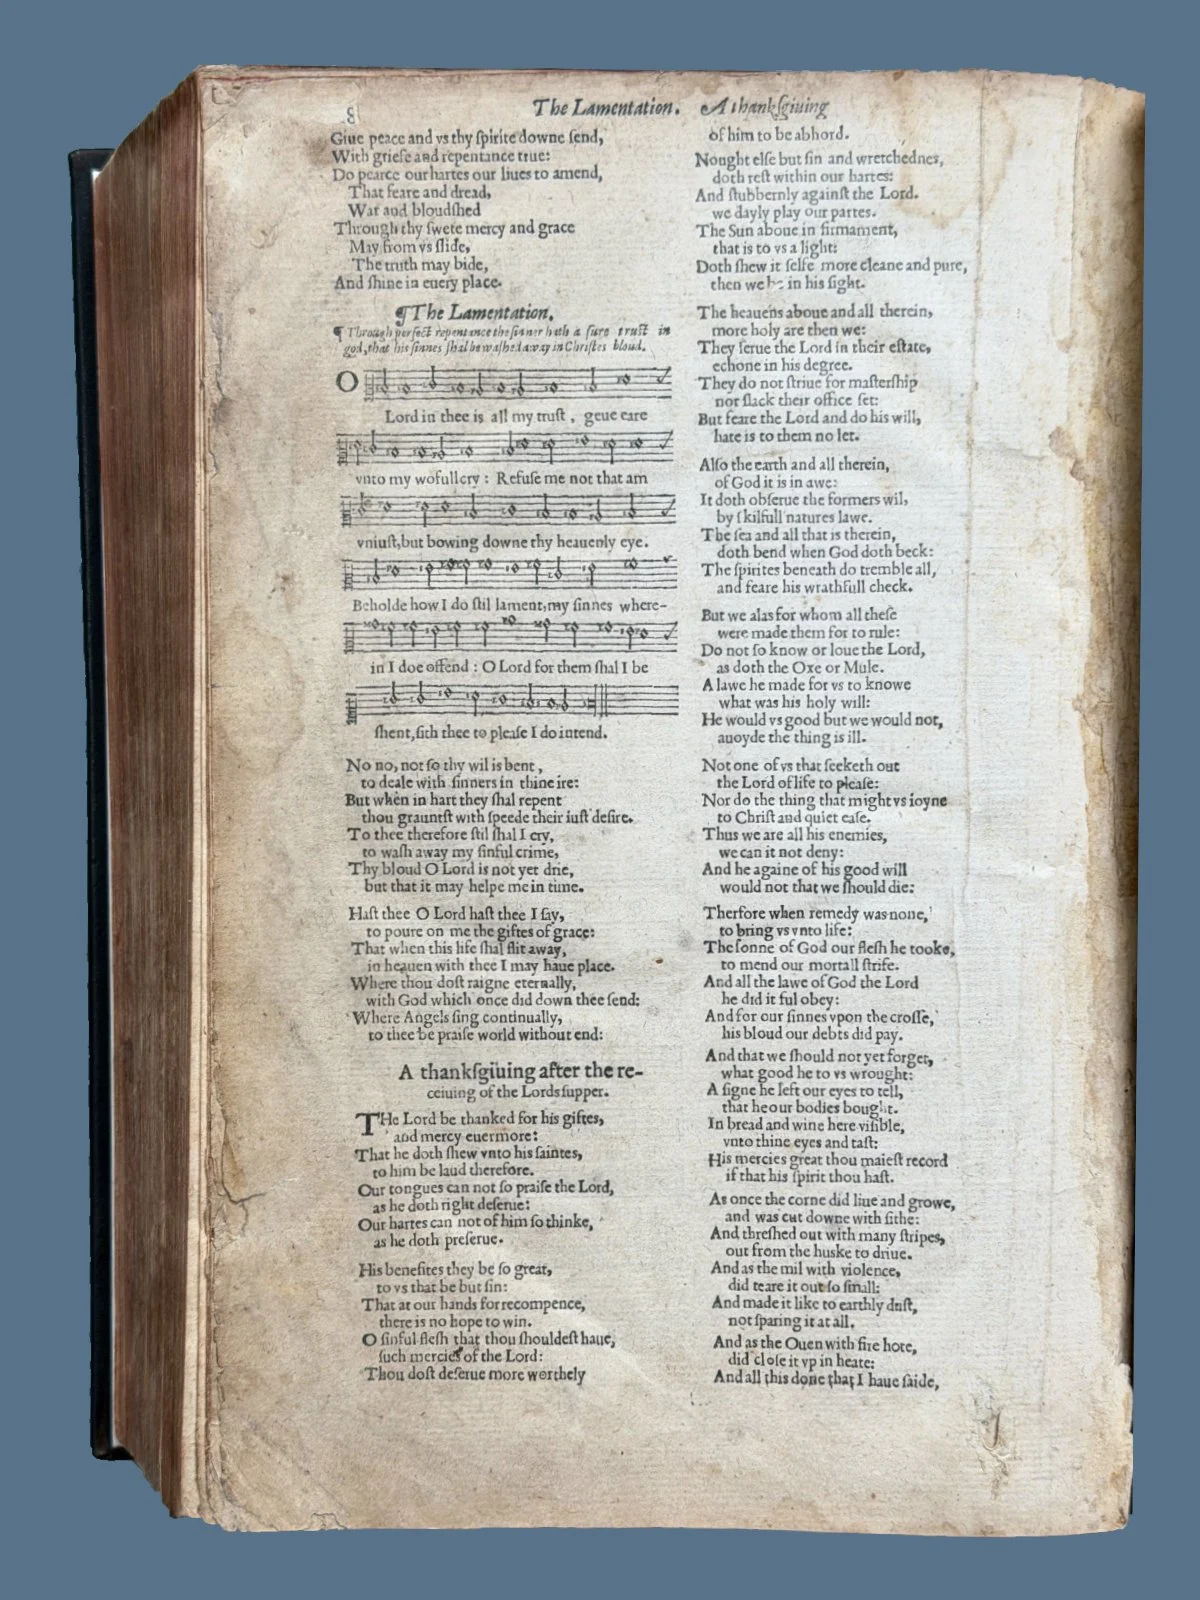 The Lamentation. A thankſgiuing
Giue peace and vs thy ſpirite downe ſend,
With griefe and repentance true:
Do pearce our hartes our liues to amend,
That feare and dread,
War and bloudſhed
Through thy ſwete mercy and grace
May from vs ſlide,
The truth may bide,
And ſhine in euery place.
¶The Lamentation.
¶ Through perfect repentance the ſinner hath a ſure truſt in
god, that his ſinnes ſhal be waſhed away in Chriſtes bloud.
O
Lord in thee is all my truſt , geue eare
vnto my wofull cry : Refuſe me not that am
vniuſt, but bowing downe thy heauenly eye.
Beholde how I do ſtil lament, my ſinnes where-
in I doe offend : O Lord for them ſhal I be
ſhent, ſith thee to pleaſe I do intend.
No no, not ſo thy wil is bent ,
to deale with ſinners in thine ire:
But when in hart they ſhal repent
thou grauntſt with ſpeede their iuſt deſire.
To thee therefore ſtil ſhal I cry,
to waſh away my ſinful crime,
Thy bloud O Lord is not yet drie,
but that it may helpe me in time.
Haſt thee O Lord haſt thee I ſay,
to poure on me the giftes of grace:
That when this life ſhal flit away,
in heauen with thee I may haue place.
Where thou doſt raigne eternally,
with God which once did down thee ſend:
Where Angels ſing continually,
to thee be praiſe world without end:
A thankſgiuing after the re-
ceiuing of the Lords ſupper.
THe Lord be thanked for his giftes,
and mercy euermore:
That he doth ſhew vnto his ſaintes,
to him be laud therefore.
Our tongues can not ſo praiſe the Lord,
as he doth right deſerue:
Our hartes can not of him ſo thinke,
as he doth preſerue.
His benefites they be ſo great,
to vs that be but ſin:
That at our hands for recompence,
there is no hope to win.
O ſinful fleſh that thou ſhouldeſt haue,
ſuch mercies of the Lord:
Thou doſt deſerue more worthely
of him to be abhord.
Nought elſe but ſin and wretchednes,
doth reſt within our hartes:
And ſtubbernly againſt the Lord.
we dayly play our partes.
The Sun aboue in firmament,
that is to vs a light:
Doth ſhew it ſelfe more cleane and pure,
then we be in his ſight.
The heauens aboue and all therein,
more holy are then we:
They ſerue the Lord in their eſtate,
echone in his degree.
They do not ſtriue for maſterſhip
nor ſlack their office ſet:
But feare the Lord and do his will,
hate is to them no let.
Alſo the earth and all therein,
of God it is in awe:
It doth obſerue the formers wil,
by ſkilfull natures lawe.
The ſea and all that is therein,
doth bend when God doth beck:
The ſpirites beneath do tremble all,
and feare his wrathfull check.
But we alas for whom all theſe
were made them for to rule:
Do not ſo know or loue the Lord,
as doth the Oxe or Mule.
A lawe he made for vs to knowe
what was his holy will:
He would vs good but we would not,
auoyde the thing is ill.
Not one of vs that ſeeketh out
the Lord of life to pleaſe:
Nor do the thing that might vs ioyne
to Chriſt and quiet eaſe.
Thus we are all his enemies,
we can it not deny:
And he againe of his good will
would not that we ſhould die:
Therfore when remedy was none,
to bring vs vnto life:
The ſonne of God our fleſh he tooke,
to mend our mortall ſtrife.
And all the lawe of God the Lord
he did it ful obey:
And for our ſinnes vpon the croſſe,
his bloud our debts did pay.
And that we ſhould not yet forget,
what good he to vs wrought:
A ſigne he left our eyes to tell,
that he our bodies bought.
In bread and wine here viſible,
vnto thine eyes and taſt:
His mercies great thou maieſt record
if that his ſpirit thou haſt.
As once the corne did liue and growe,
and was cut downe with ſithe:
And threſhed out with many ſtripes,
out from the huske to driue.
And as the mil with violence,
did teare it out ſo ſmall:
And made it like to earthly duſt,
not ſparing it at all.
And as the Ouen with fire hote,
did cloſe it vp in heate:
And all this done that I haue ſaide,